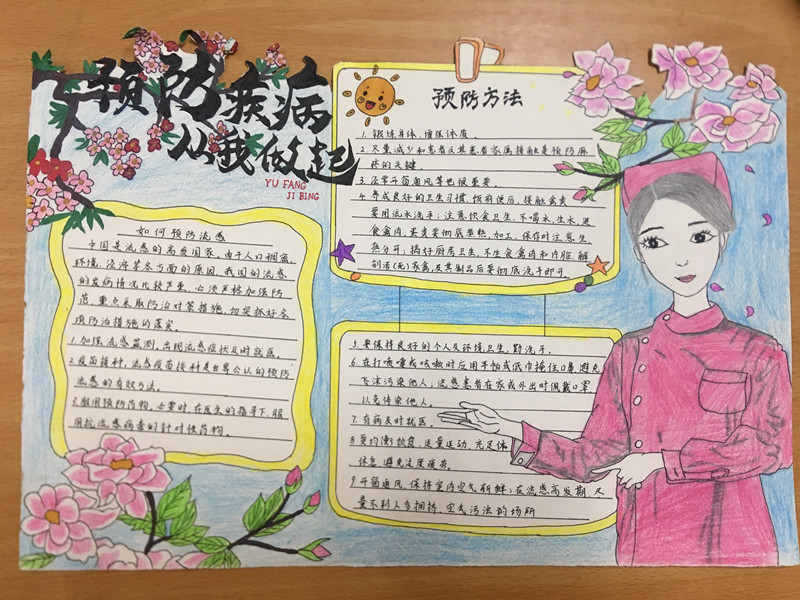 预防疾病
从我做起
YU FANG
JI BING
如何预防流感
中国是流感的高发国家。由于人口稠密,
环境、经济等多方面的原因,我国的流感
的发病情况比较严重,必须严格加强防
范,重点采取防治对策措施,切实抓好各
项防治措施的落实。
1.加强流感监测,出现流感症状及时就医。
2.疫苗接种,流感疫苗接种是世界公认的预防
流感的有效方法。
3.服用预防药物,必要时,在医生的指导下,服
用抗流感病毒的针对性药物。
预防方法
1.锻炼身体,增强体质。
2.尽量减少和患者及其患者家属接触是预防麻
疹的关键。
3.经常开窗通风等也很重要。
4.养成良好的卫生习惯,饭前便后,接触禽类
要用流水洗手;注意饮食卫生,不喝水,生水,进
食禽肉,蛋类要彻底煮熟,加工、保存时注意生、
熟分开;搞好厨房卫生,不生食禽肉和内脏,解
剖活(死)家禽及其制品后要彻底洗手即可。
5.要保持良好的个人及环境卫生,勤洗手。
6.在打喷嚏或咳嗽时应用手帕或纸巾掩住口鼻,避免
飞沫污染他人;流感患者在家或外出时佩戴口罩
以免传染他人。
7.有病及时就医。
8.要均衡饮食,适量运动,充足休
休息,避免过度疲劳。
9.开窗通风,保持室内空气新鲜;在流感高发期,尽
量不到人多拥挤,空气污浊的场所